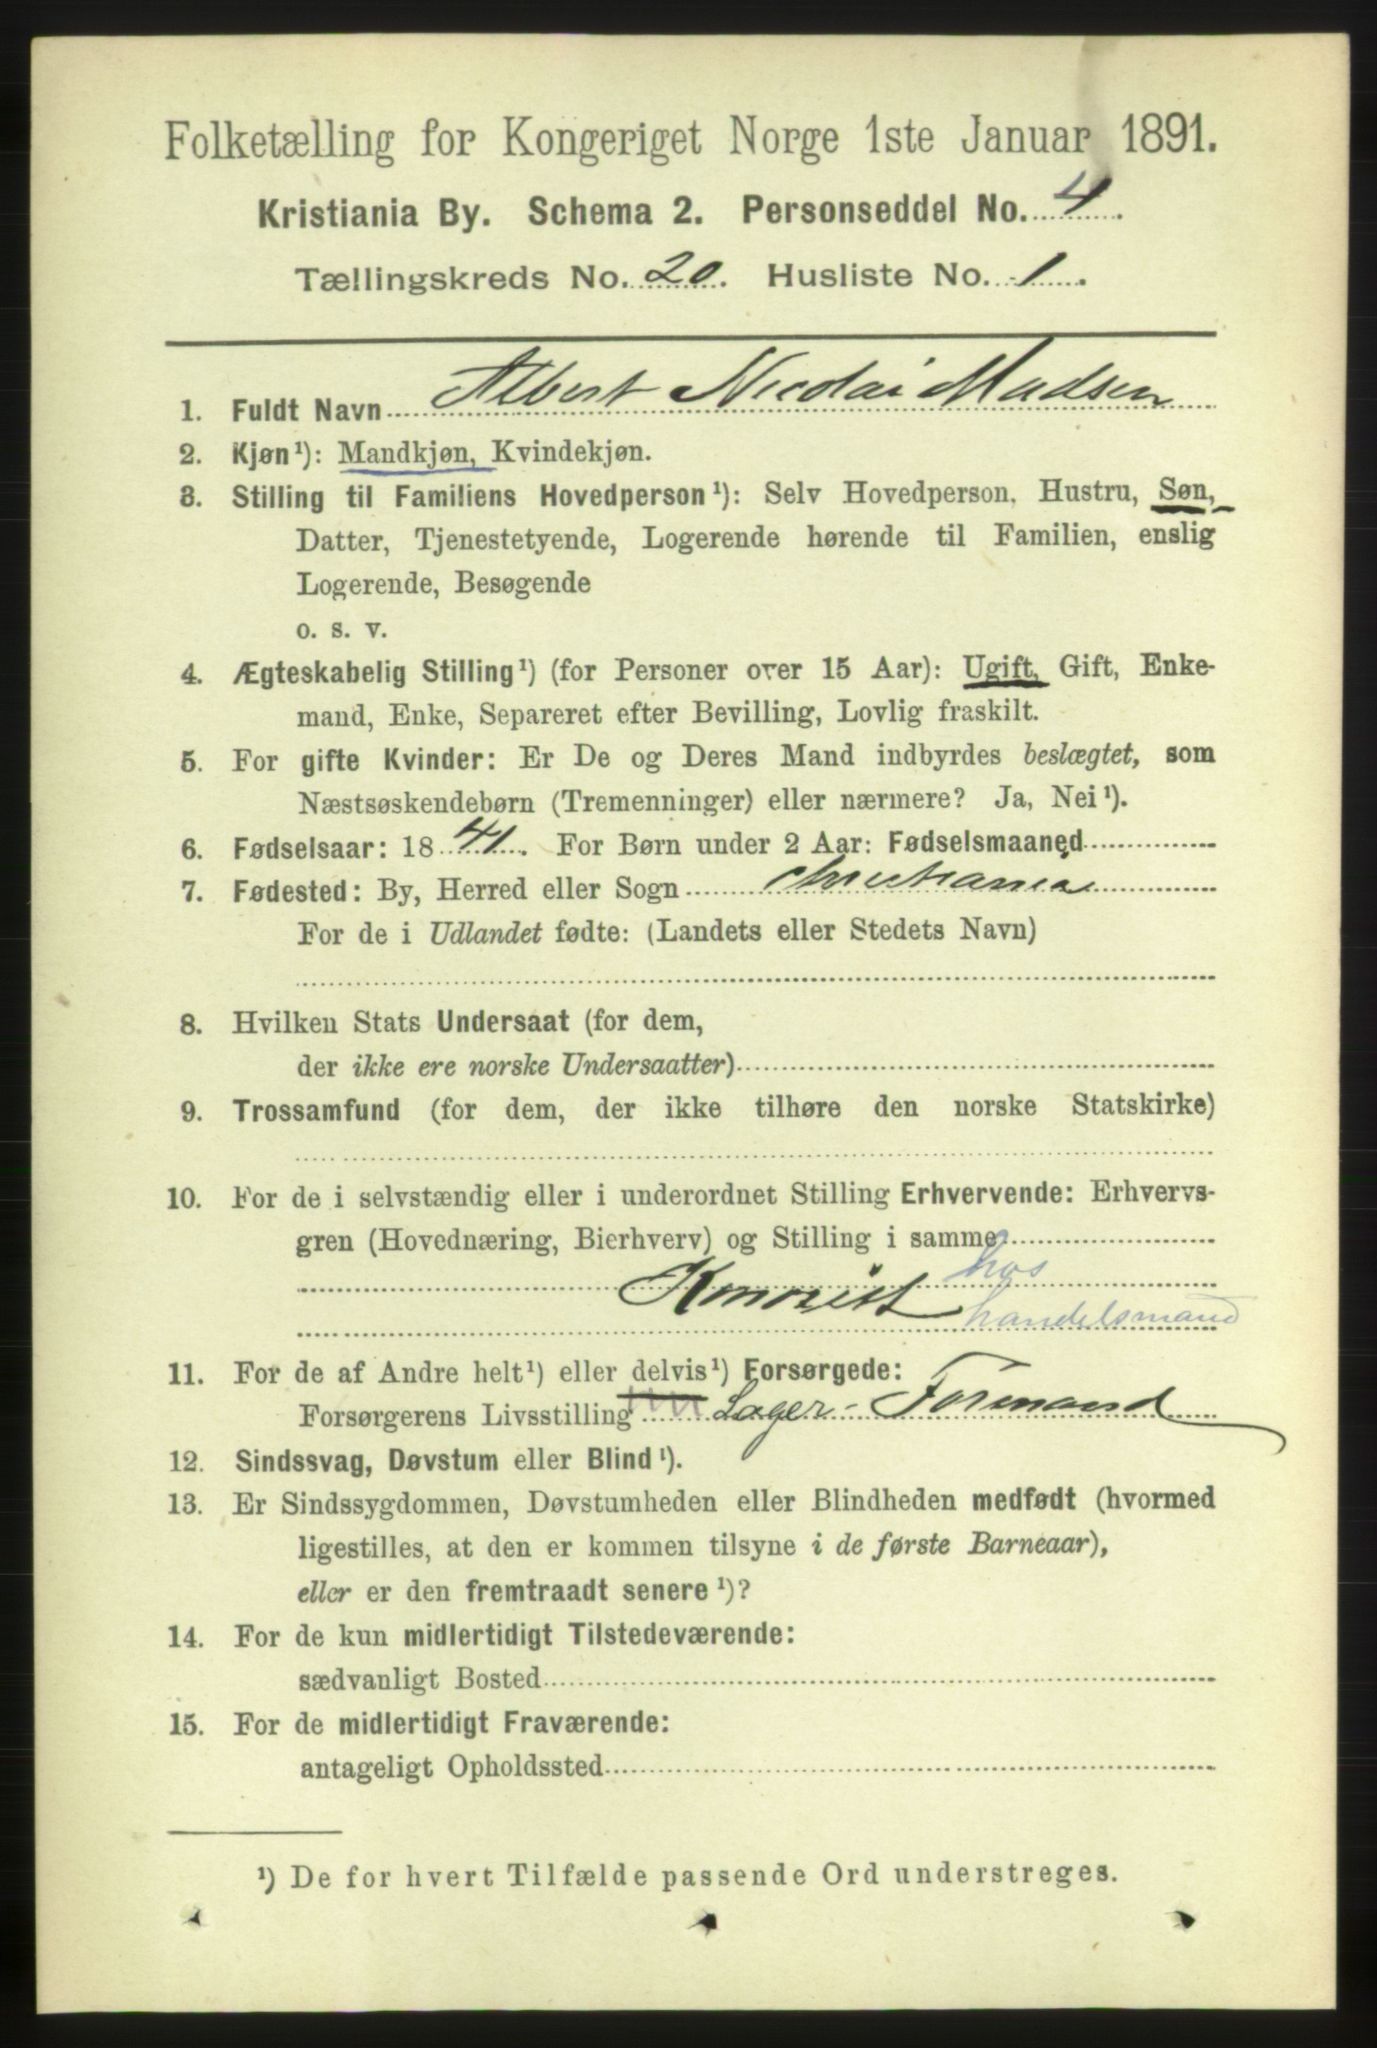 Folketælling for Kongeriget Norge 1ste Januar 1891.
Kristiania By. Schema 2. Personseddel No. 4.
Tællingskreds No. 20. Husliste No. 1.
1. Fuldt Navn Albert Nicolai Madsen
2. Kjøn¹): Mandkjøn, Kvindekjøn.
3. Stilling til Familiens Hovedperson¹): Selv Hovedperson, Hustru, Søn,
Datter, Tjenestetyende, Logerende hørende til Familien, enslig
Logerende, Besøgende
o. s. v.
4. Ægteskabelig Stilling¹) (for Personer over 15 Aar): Ugift, Gift, Enke-
mand, Enke, Separeret efter Bevilling, Lovlig fraskilt.
5. For gifte Kvinder: Er De og Deres Mand indbyrdes beslægtet, som
Næstsøskendebørn (Tremenninger) eller nærmere? Ja, Nei¹).
6. Fødselsaar: 1841. For Børn under 2 Aar: Fødselsmaaned
7. Fødested: By, Herred eller Sogn Christiania
For de i Udlandet fødte: (Landets eller Stedets Navn)
8. Hvilken Stats Undersaat (for dem,
der ikke ere norske Undersaatter)
9. Trossamfund (for dem, der ikke tilhøre den norske Statskirke)
10. For de i selvstændig eller i underordnet Stilling Erhvervende: Erhvervs-
gren (Hovednæring, Bierhverv) og Stilling i samme
hos
Kontorist handelsmand
11. For de af Andre helt¹) eller delvis¹) Forsørgede:
Forsørgerens Livsstilling Lager-Formand
12. Sindssvag, Døvstum eller Blind¹).
13. Er Sindssygdommen, Døvstumheden eller Blindheden medfødt (hvormed
ligestilles, at den er kommen tilsyne i de første Barneaar),
eller er den fremtraadt senere¹)?
14. For de kun midlertidigt Tilstedeværende:
sædvanligt Bosted
15. For de midlertidigt Fraværende:
antageligt Opholdssted
¹) De for hvert Tilfælde passende Ord understreges.